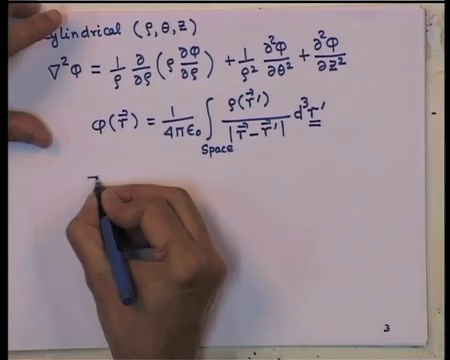 Cylindrical (ρ, θ, z)
∇²φ = 1/ρ ∂/∂ρ (ρ ∂φ/∂ρ) + 1/ρ² ∂²φ/∂θ² + ∂²φ/∂z²
φ(r⃗) = 1/4πε₀ ∫_Space ρ(r⃗′)/|r⃗−r⃗′| d³r′
3